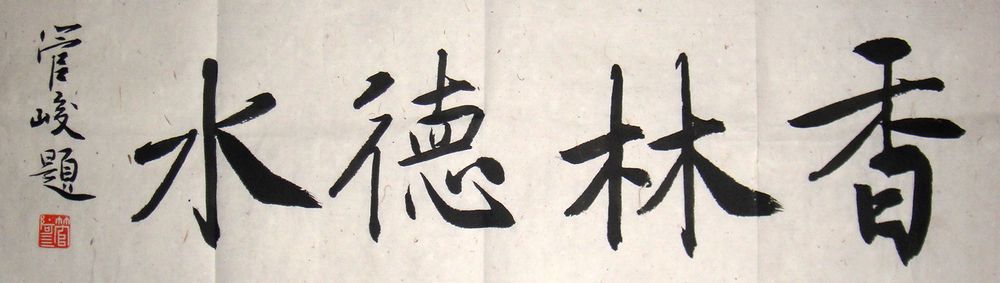 香林德水
管峻題